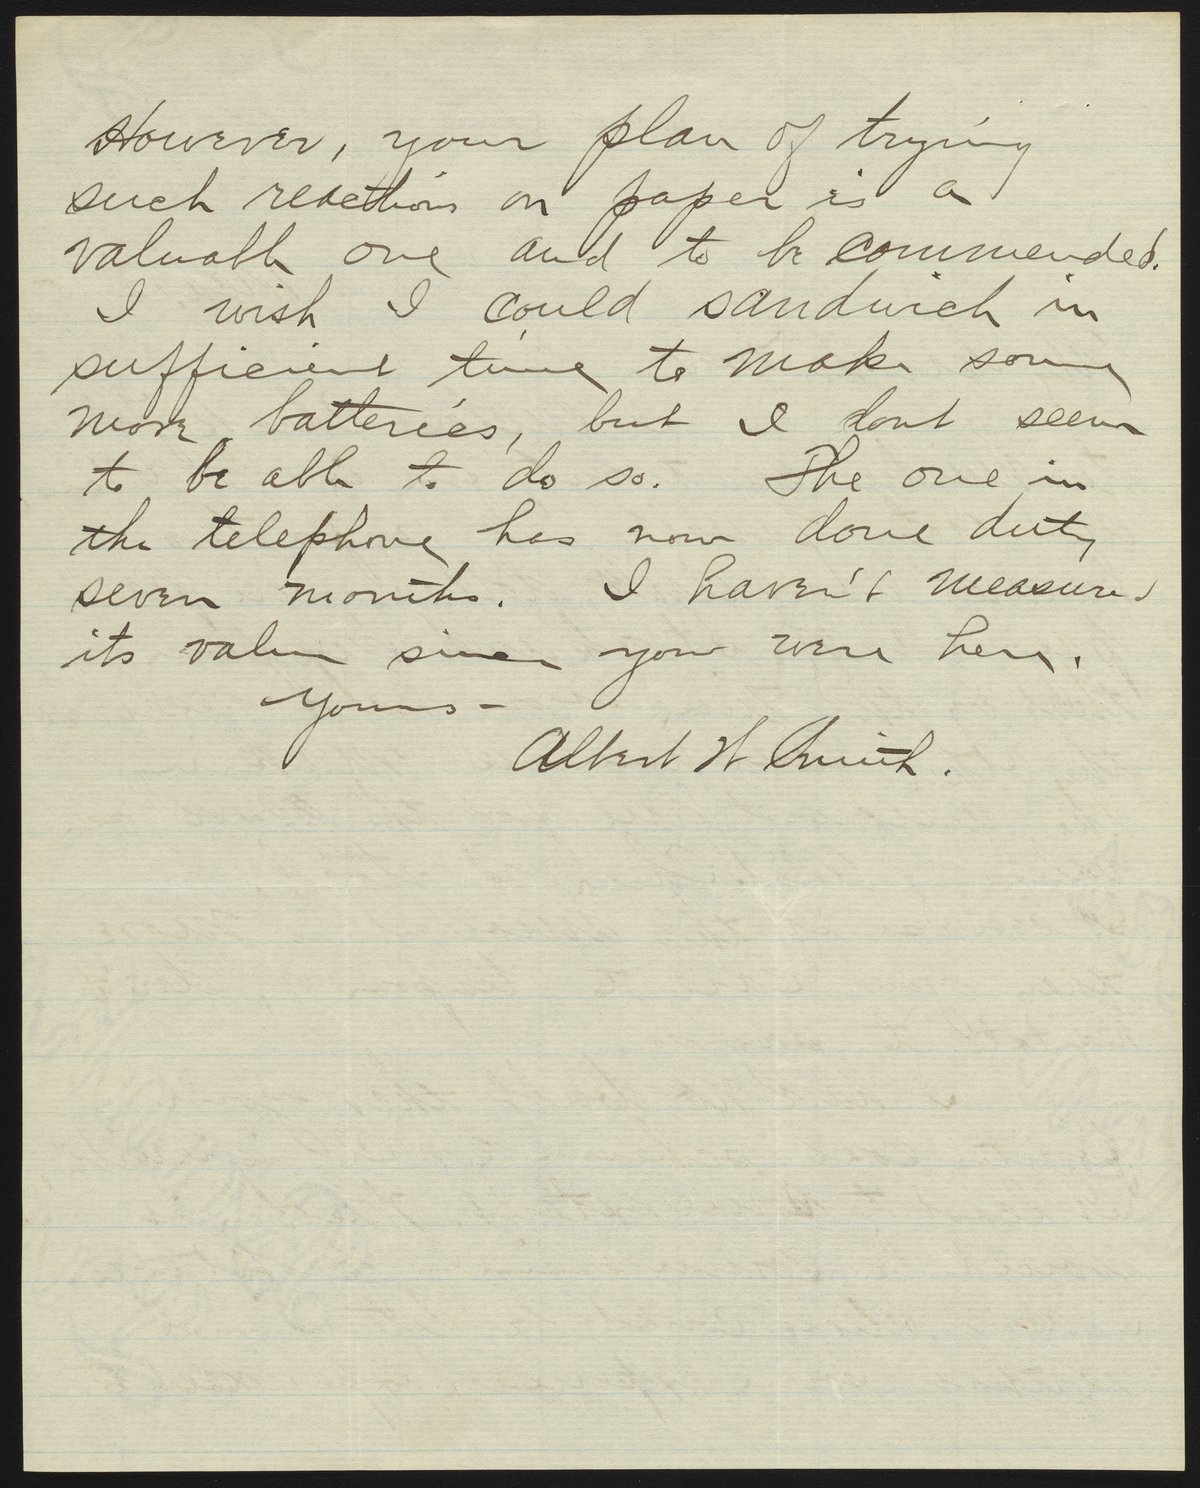 However, your plan of trying
such reactions on paper is a
valuable one and to be commended.
I wish I could sandwich in
sufficient time to make some
more batteries, but I dont seem
to be able to do so. The one in
the telephone has now done duty
seven months. I haven't measured
its value since you were here.
Yours -
Albert W Smith.